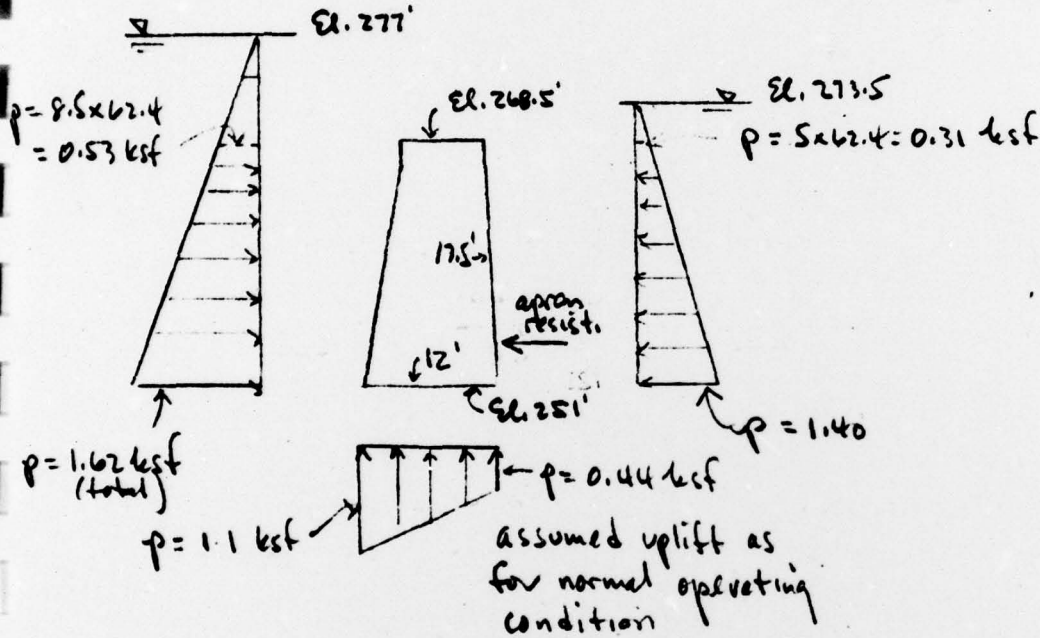 El. 277'
p = 8.5x62.4
= 0.53 ksf
El. 268.5'
El. 273.5
p = 5x62.4 = 0.31 ksf
17.5'
apron
resist.
12'
El. 251'
p = 1.62 ksf
(total)
p = 1.40
p = 1.1 ksf
p = 0.44 ksf
assumed uplift as
for normal operating
condition